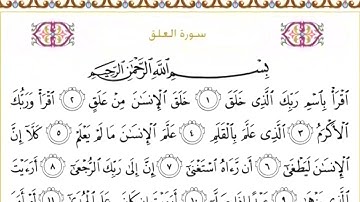 سورة العلق
بِسْمِ اللَّهِ الرَّحْمَٰنِ الرَّحِيمِ
ٱقْرَأْ بِٱسْمِ رَبِّكَ ٱلَّذِى خَلَقَ ١ خَلَقَ ٱلْإِنسَٰنَ مِنْ عَلَقٍ ٢ ٱقْرَأْ وَرَبُّكَ
ٱلْأَكْرَمُ ٣ ٱلَّذِى عَلَّمَ بِٱلْقَلَمِ ٤ عَلَّمَ ٱلْإِنسَٰنَ مَا لَمْ يَعْلَمْ ٥ كَلَّآ إِنَّ
ٱلْإِنسَٰنَ لَيَطْغَىٰٓ ٦ أَن رَّءَاهُ ٱسْتَغْنَىٰٓ ٧ إِنَّ إِلَىٰ رَبِّكَ ٱلرُّجْعَىٰٓ ٨ أَرَءَيْتَ